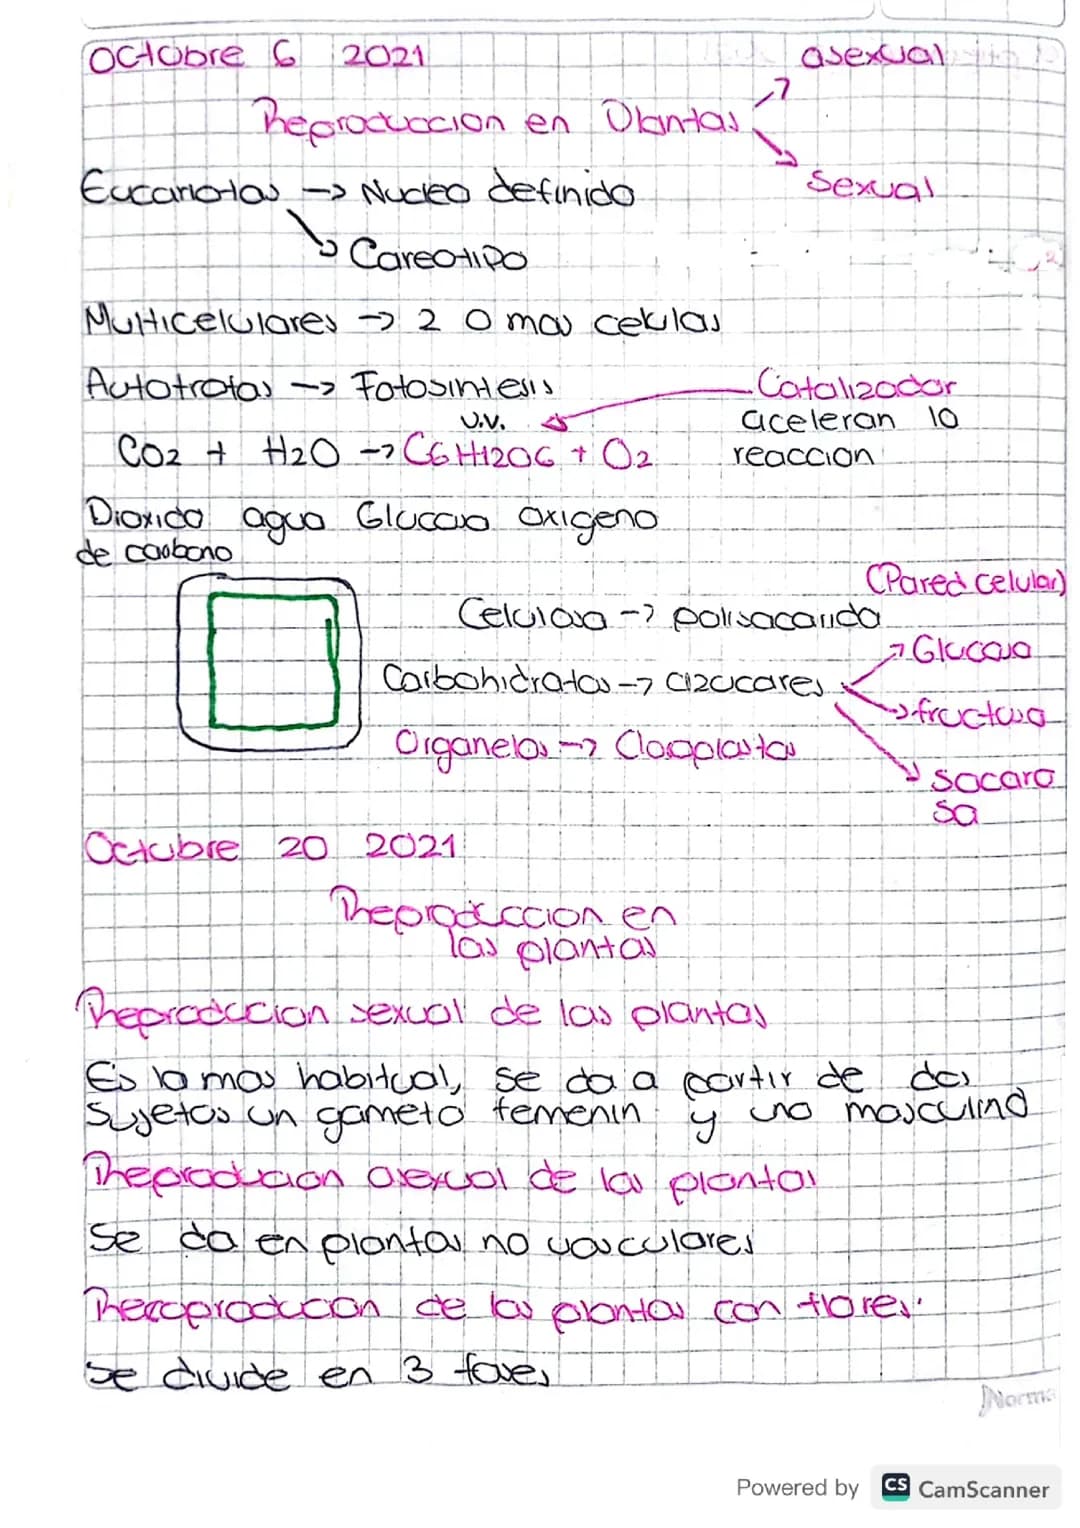 Octubre 6 2021
asexual
Reproduccion en Plantas
Sexual
Eucariotas -> Nucleo definido
Careotipo
Multicelulares -> 2 o mas celulas
Autotrofas -> Fotosintesis
Catalizador
U.V.
aceleran la
CO2 + H2O -> C6H12O6 + O2
reaccion
Dioxido agua Glucosa oxigeno
de carbono
(Pared celular)
Celulosa -> polisacarida
Glucosa
Carbohidratos -> azucares
fructosa
Organelos -> Cloroplastos
sacaro
sa
Octubre 20 2021
Reproduccion en
las plantas
Reproduccion sexual de las plantas
Es la mas habitual, se da a partir de dos
Sujetos un gameto femenin y uno masculino
Reproducion asexual de las plantas
Se da en plantas no vasculares
Recoproducion de las plantas con flores.
se divide en 3 fases
Norma
Powered by CS CamScanner